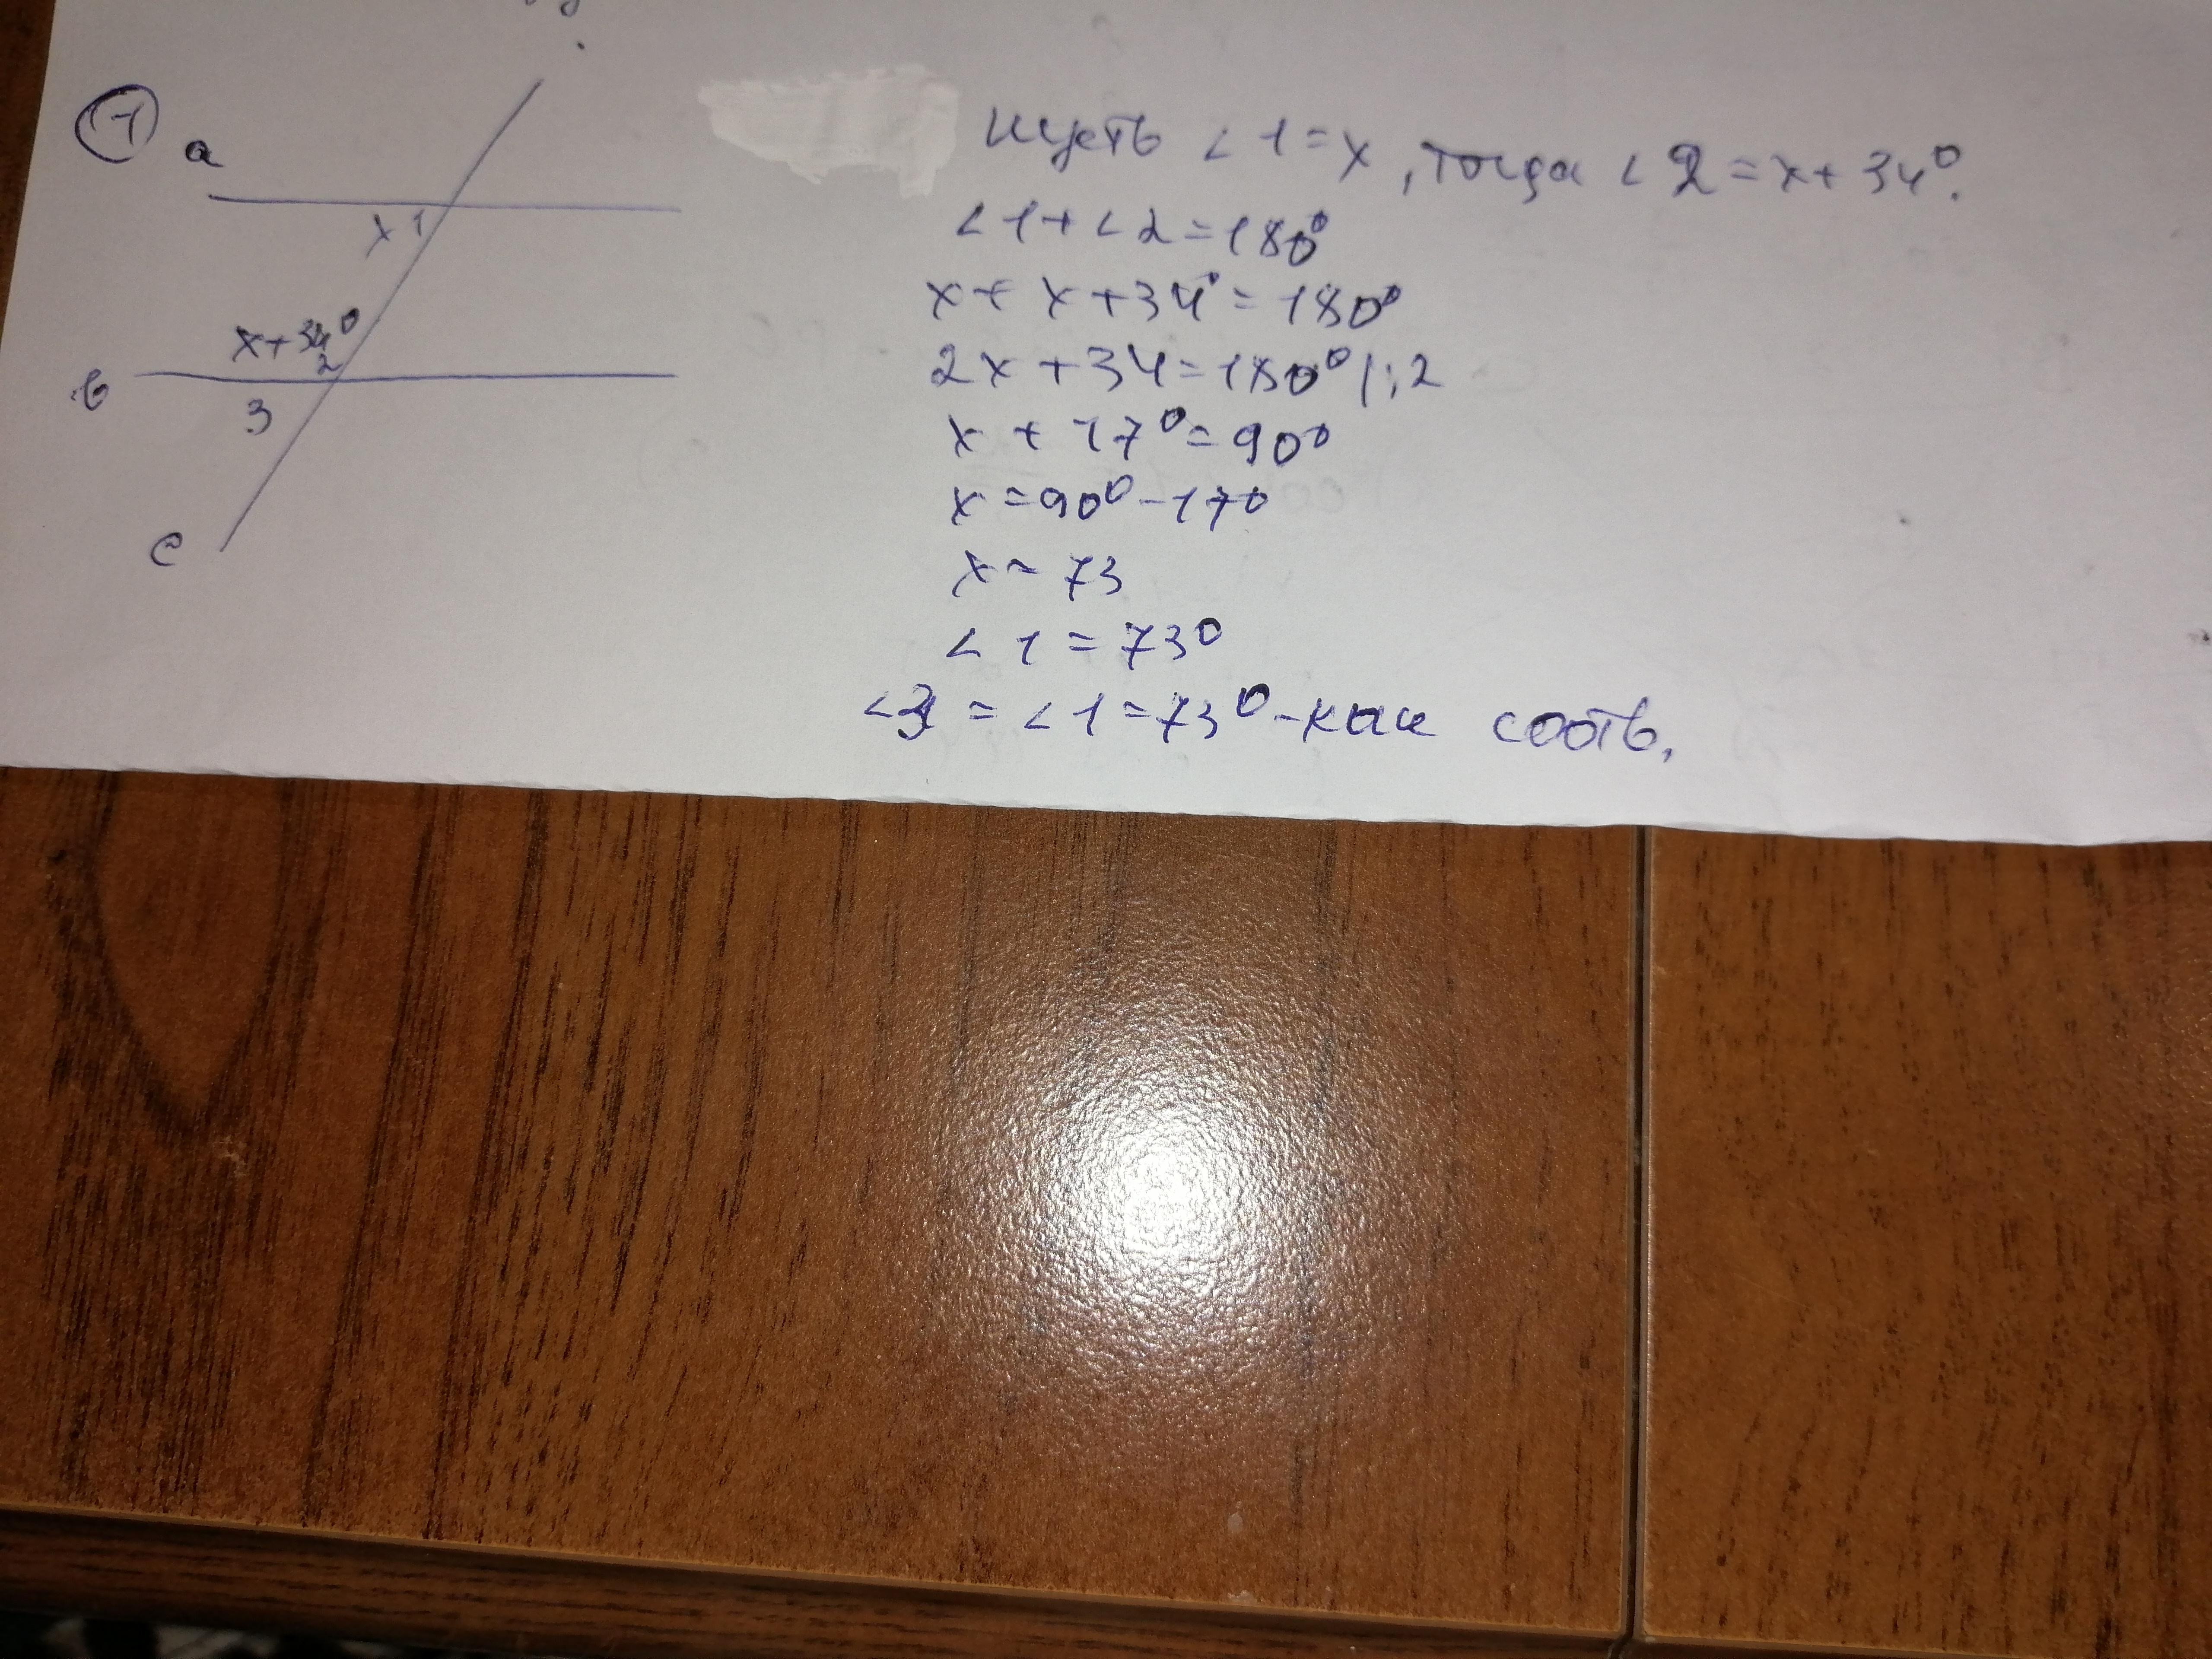 1
a
x 1
x+34⁰
2
в
3
c
пусть <1=x, тогда <2=x+34⁰.
<1+<2=180⁰
x+x+34⁰=180⁰
2x+34=180⁰|:2
x+17⁰=90⁰
x=90⁰-17⁰
x=73
<1=73⁰
<3=<1=73⁰-как соотв.